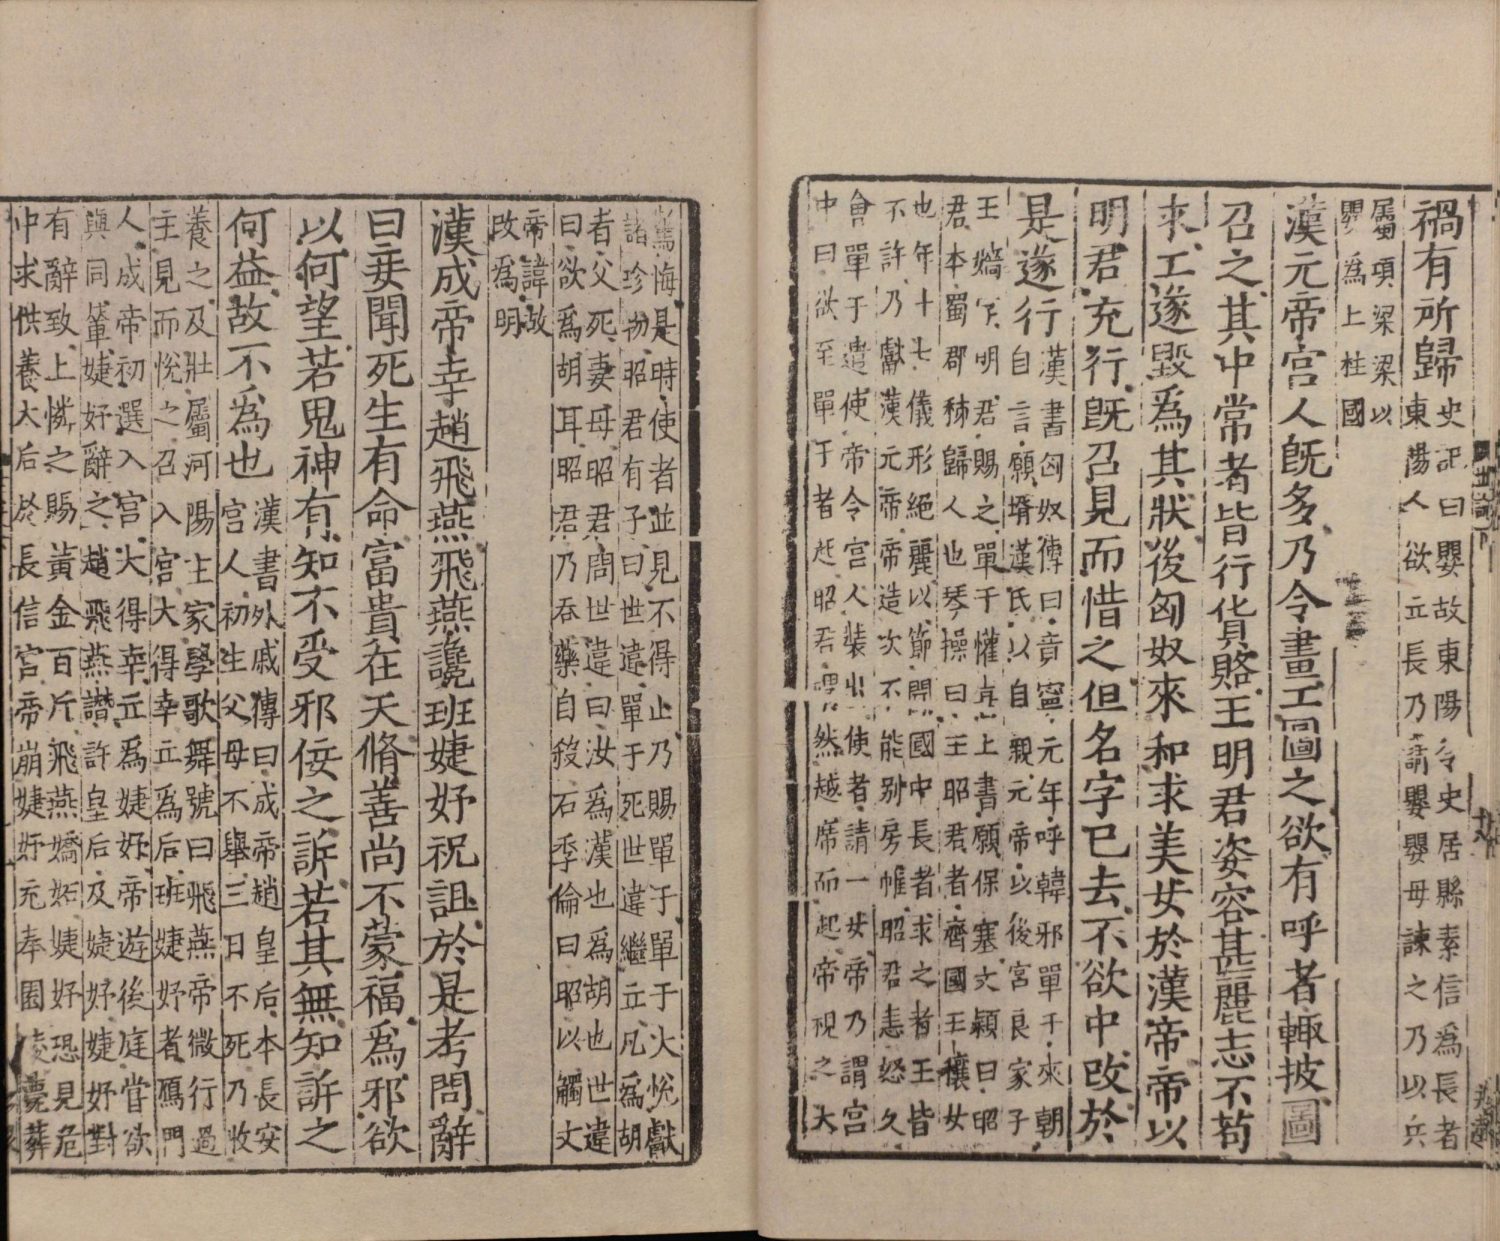 禍有所歸
史記曰嬰故東陽令史居縣素信爲長者
東陽人欲立長乃請嬰嬰母諫之乃以兵
屬項梁梁以
嬰爲上柱國
漢元帝宮人旣多乃令畫工圖之欲有呼者輙披圖
召之其中常者皆行貨賂王明君姿容甚麗志不苟
求工遂毀爲其狀後匈奴來和求美女於漢帝帝以
明君充行旣召見而惜之但名字已去不欲中改於
是遂行
漢書匈奴傳曰竟寧元年呼韓邪單于來朝
自言願壻漢氏以自親元帝以後宮良家子
王嬙字明君賜之單于懽喜上書願保塞文穎曰昭
君本蜀郡秭歸人也琴操曰王昭君者齊國王穰女
也年十七儀形絕麗以節聞國中長者求之者王皆
不許乃獻漢元帝帝造次不能別房帷昭君恚怒久
會單于遣使帝令宮人裝出使者請一女帝乃謂宮
中曰欲至單于者起昭君喟然越席而起帝視之大
驚悔是時使者並見不得止乃賜單于單于大悅獻
諸珍物昭君有子曰世違單于死世違繼立凡爲胡
者父死妻母昭君問世違曰汝爲漢也爲胡也世違
曰欲爲胡耳昭君乃吞藥自殺石季倫曰昭以觸文
帝諱故
改爲明
漢成帝幸趙飛燕飛燕讒班婕妤祝詛於是考問辭
曰妾聞死生有命富貴在天脩善尚不蒙福爲邪欲
以何望若鬼神有知不受邪佞之訴若其無知訴之
何益故不爲也
漢書外戚傳曰成帝趙皇后本長安
宮人初生父母不舉三日不死乃收
養之及壯屬河陽主家學歌舞號曰飛燕帝微行過
主見而悅之召入宮大得幸立爲后班婕妤者鴈門
人成帝初選入宮大得幸立爲婕妤帝遊後庭嘗欲
與同輦婕妤辭之趙飛燕譖許皇后及婕妤婕妤對
有辭致上憐之賜黃金百斤飛燕嬌妬婕妤恐見危
中求供養太后於長信宮帝崩婕妤充奉園陵薨葬